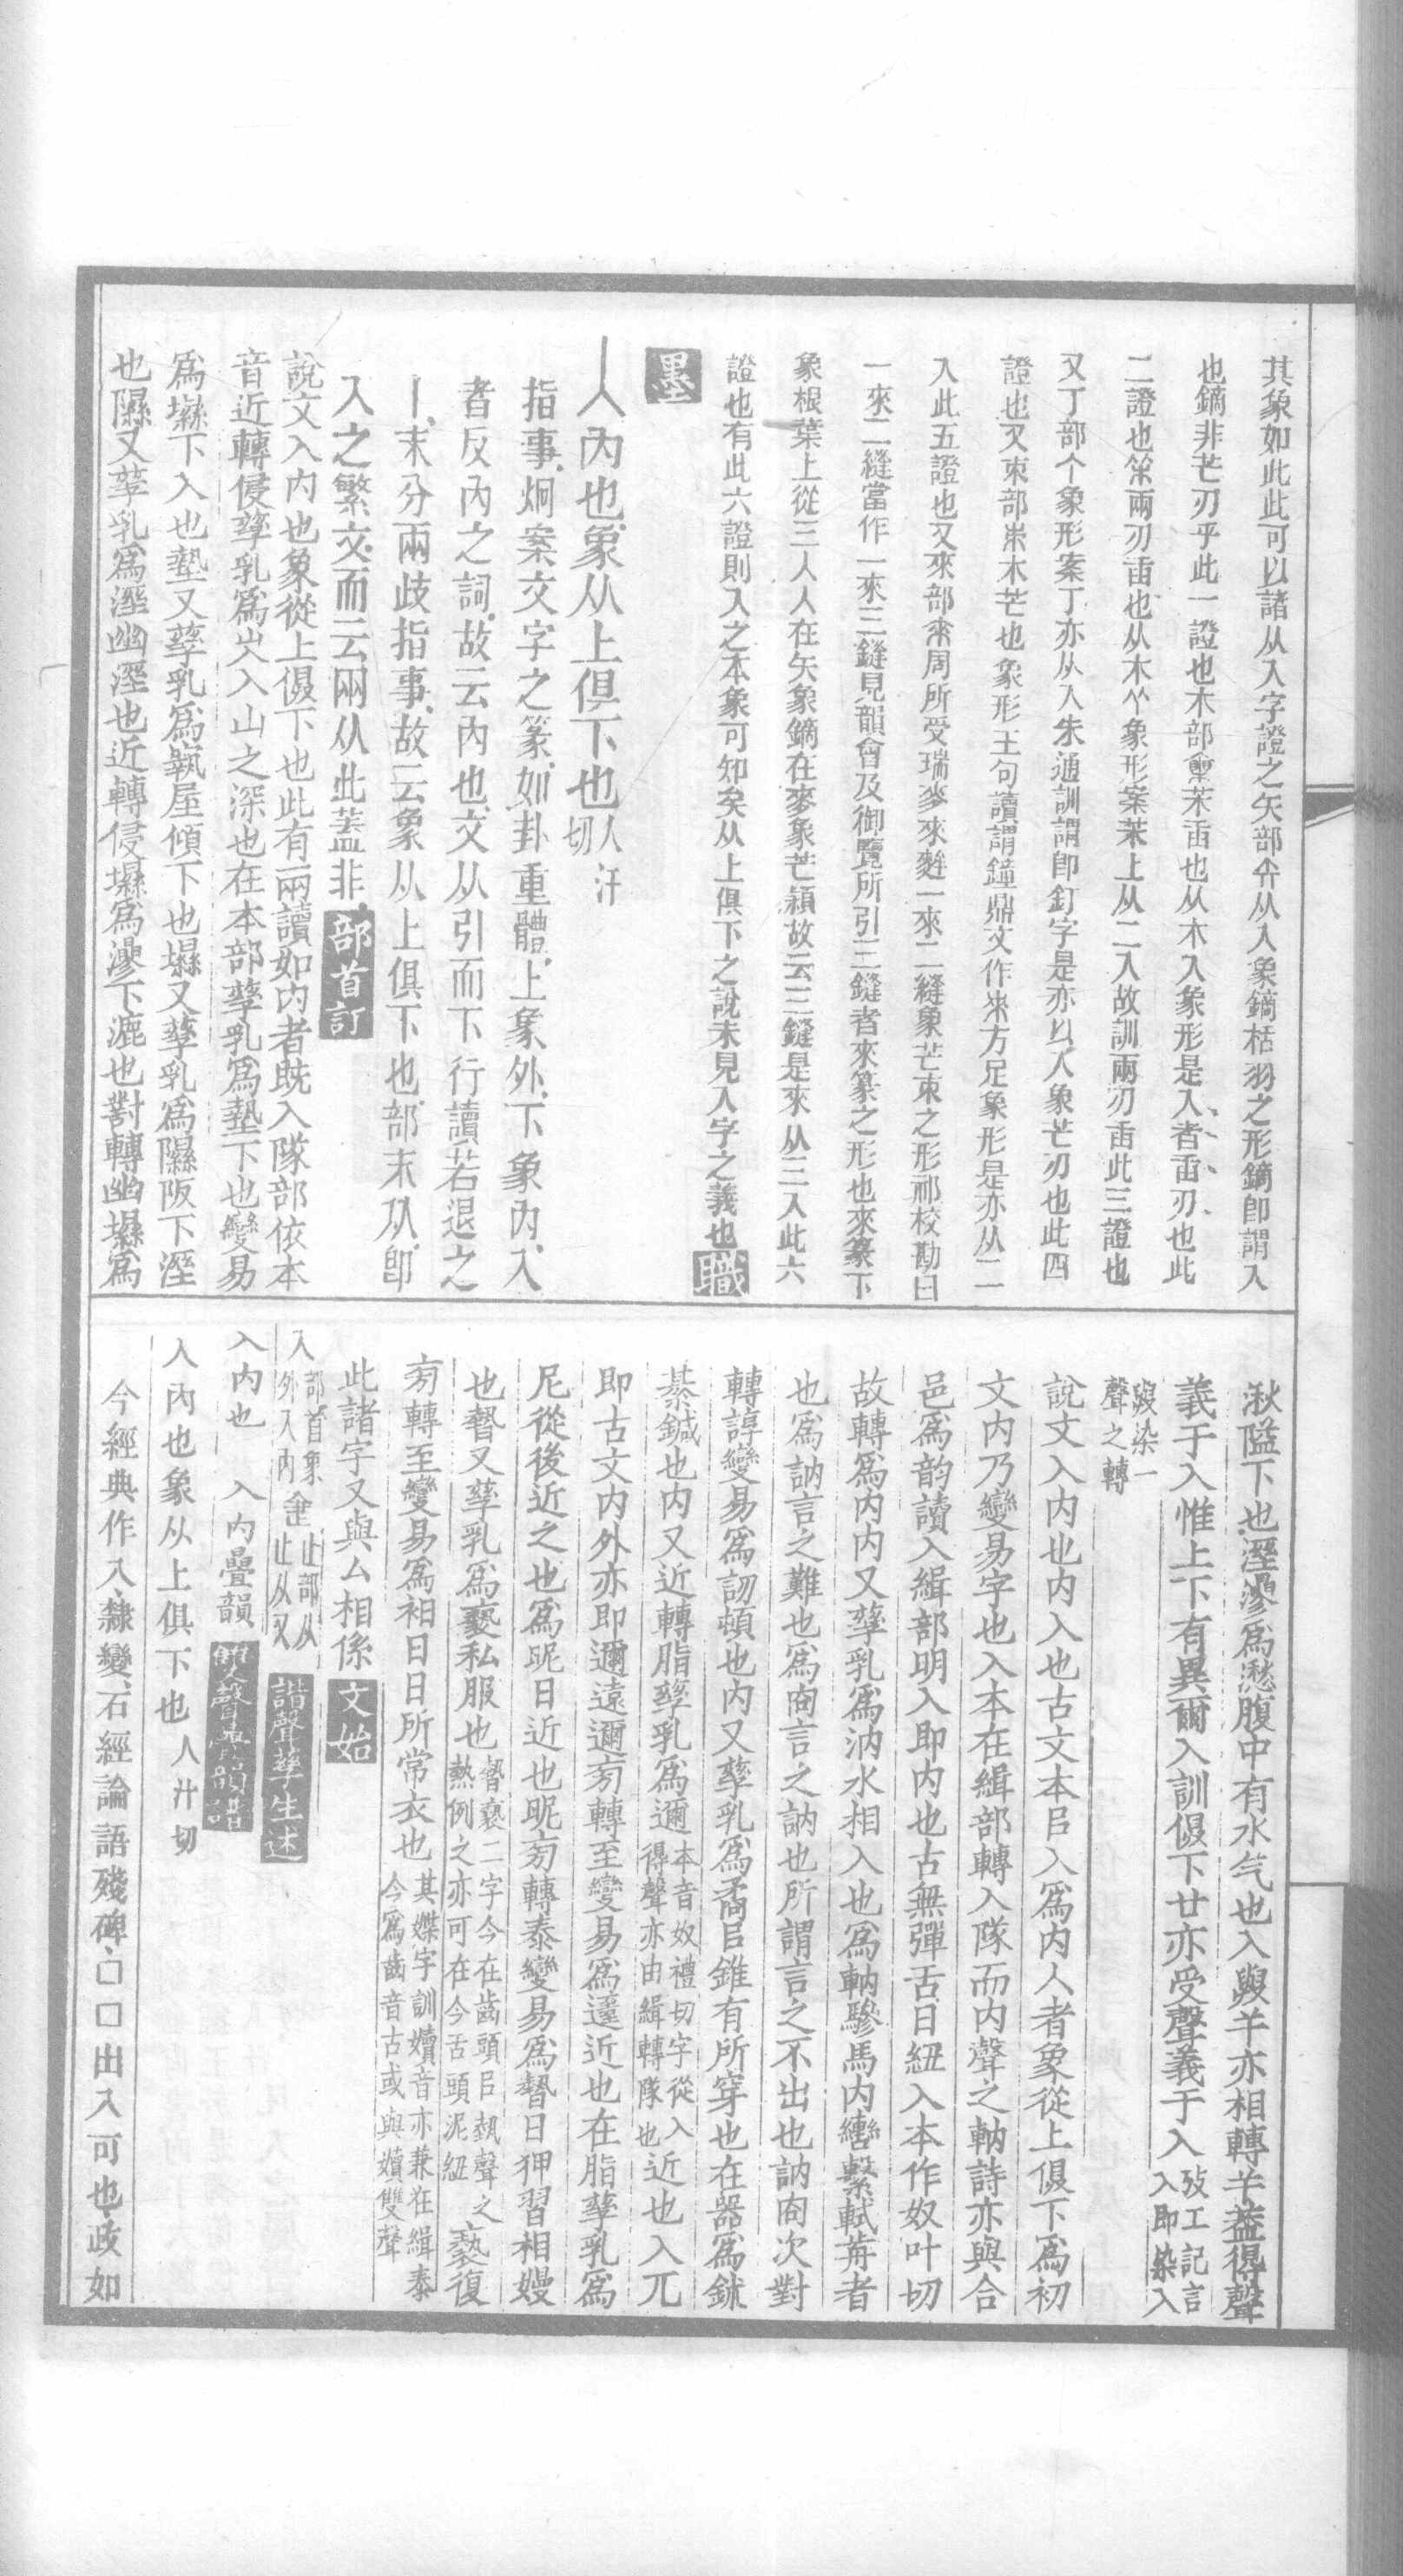 其象如此此可以諸从入字證之矢部矢从入象鏑栝羽之形鏑卽謂入
也鏑非芒刃乎此一證也木部㭒茉臿也从木入象形是入者臿刃也此
二證也茉兩刃臿也从木象形案茉上从二入故訓兩刃臿此三證也
又丁部个象形案丁亦从入朱通訓謂卽釘字是亦以入象芒刃也此四
證也又朿部朿木芒也象形王句讀謂鐘鼎文作朿方足象形是亦从二
入此五證也又來部來周所受瑞麥來麰一來二縫象芒朿之形祁校勘曰
一來二縫當作一來三縫見韻會及御覽所引三縫者來篆之形也來篆下
象根葉上從三人人在矢象鏑在麥象芒穎故云三縫是來从三入此六
證也有此六證則入之本象可知矣从上俱下之說未見入字之義也職
墨
入內也象从上俱下也人汁切
指事烱案文字之篆如卦重體上象外下象內入
者反內之詞故云內也文从引而下行讀若退之
丨末分兩歧指事故云象从上俱下也部末从卽
入之繁文而云兩从此蓋非部首訂
說文入內也象從上俱下也此有兩讀如內者旣入隊部依本
音近轉侵孳乳爲㞥入山之深也在本部孳乳爲墊下也變易
爲㙷下入也墊又孳乳爲㙯屋傾下也㙷又孳乳爲隰阪下溼
也隰又孳乳爲溼幽溼也近轉侵㙷爲漻下漉也對轉幽㙷爲
湫隘下也溼漻爲愁腹中有水气也入與羊亦相轉羊蓋得聲
義于入惟上下有異爾入訓俱下廿亦受聲義于入攷工記言入卽染入
與染一聲之轉
說文入內也內入也古文本㠯入爲內人者象從上俱下爲初
文內乃變易字也入本在緝部轉入隊而內聲之軜詩亦與合
邑爲韵讀入緝部明入卽內也古無彈舌日紐入本作奴叶切
故轉爲內內又孳乳爲汭水相入也爲軜驂馬內轡繫軾歬者
也爲訥言之難也爲㕯言之訥也所謂言之不出也訥㕯次對
轉諄變易爲訒頓也內又孳乳爲矞㠯錐有所穿也在器爲鉥
綦鍼也內又近轉脂孳乳爲邇本音奴禮切字從入得聲亦由緝轉隊也近也入兀
卽古文內外亦卽邇遠邇㫄轉至變易爲䢌近也在脂孳乳爲
尼從後近之也爲昵日近也昵㫄轉泰變易爲暬日狎習相嫚
也暬又孳乳爲褻私服也暬褻二字今在齒頭㠯熱聲之熱例之亦可在今舌頭泥紐褻復
㫄轉至變易爲衵日日所常衣也其媟字訓嬻音亦兼在緝泰今爲齒音古或與嬻雙聲
此諸字又與厶相係文始
入部首象外入內
諧聲孳生述
入內也　入內疊韻
入內也象从上俱下也人汁切
今經典作入隸變石經論語殘碑□□出入可也政如